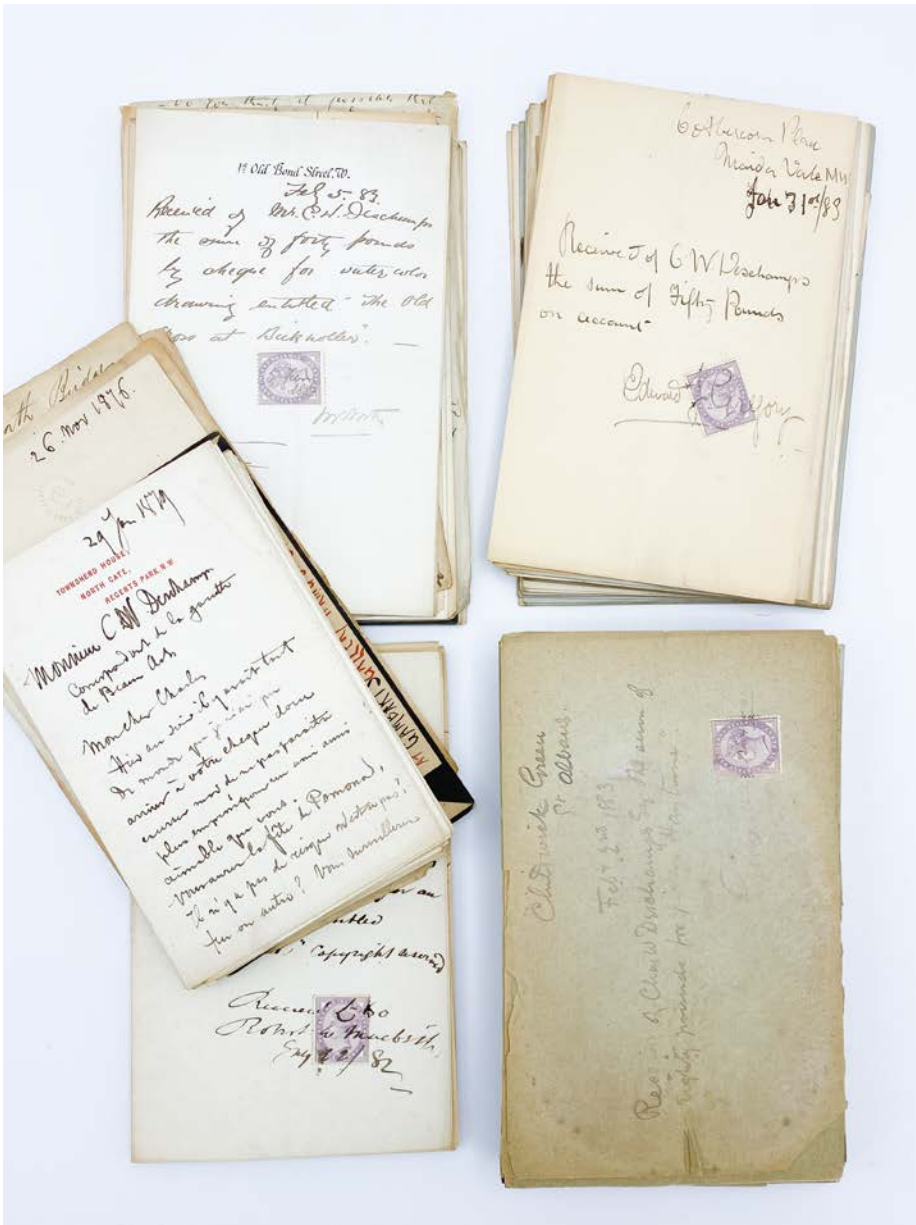 Do you think it possible that
1A Old Bond Street, W.
Feb 5. 83.
Received of Mr. C. W. Deschamps
the sum of forty pounds
by cheque for water color
drawing entitled "The Old
at Bicknoller".
6 Abercorn Place
Maida Vale NW
Jan 31st/83
Received of C W Deschamps
the sum of Fifty Pounds
on account
Edward J Gregory
26. Nov 1876.
29 Jan 1879
TOWNSHEND HOUSE,
NORTH GATE,
REGENTS PARK. N.W
Monsieur C W Deschamps
Correspondant de la gazette
de Beaux Arts
Mon cher Charles
Hier au soir il y avait tant
de monde que je n'ai pu
arriver à votre
excusez moi de
plus un ami aussi
aimable que vous.
Vous aurez la fête de Pomona,
il n'y a pas de risque n'est ce pas?
feu ou autre? Vous surveillerez
for an
Copyright reserved
Received £
Robert W Macbeth
82
Childwick Green
St Albans.
Feb 2nd 1883
Received of Chas W Deschamps Esq the sum of
eighty pounds for